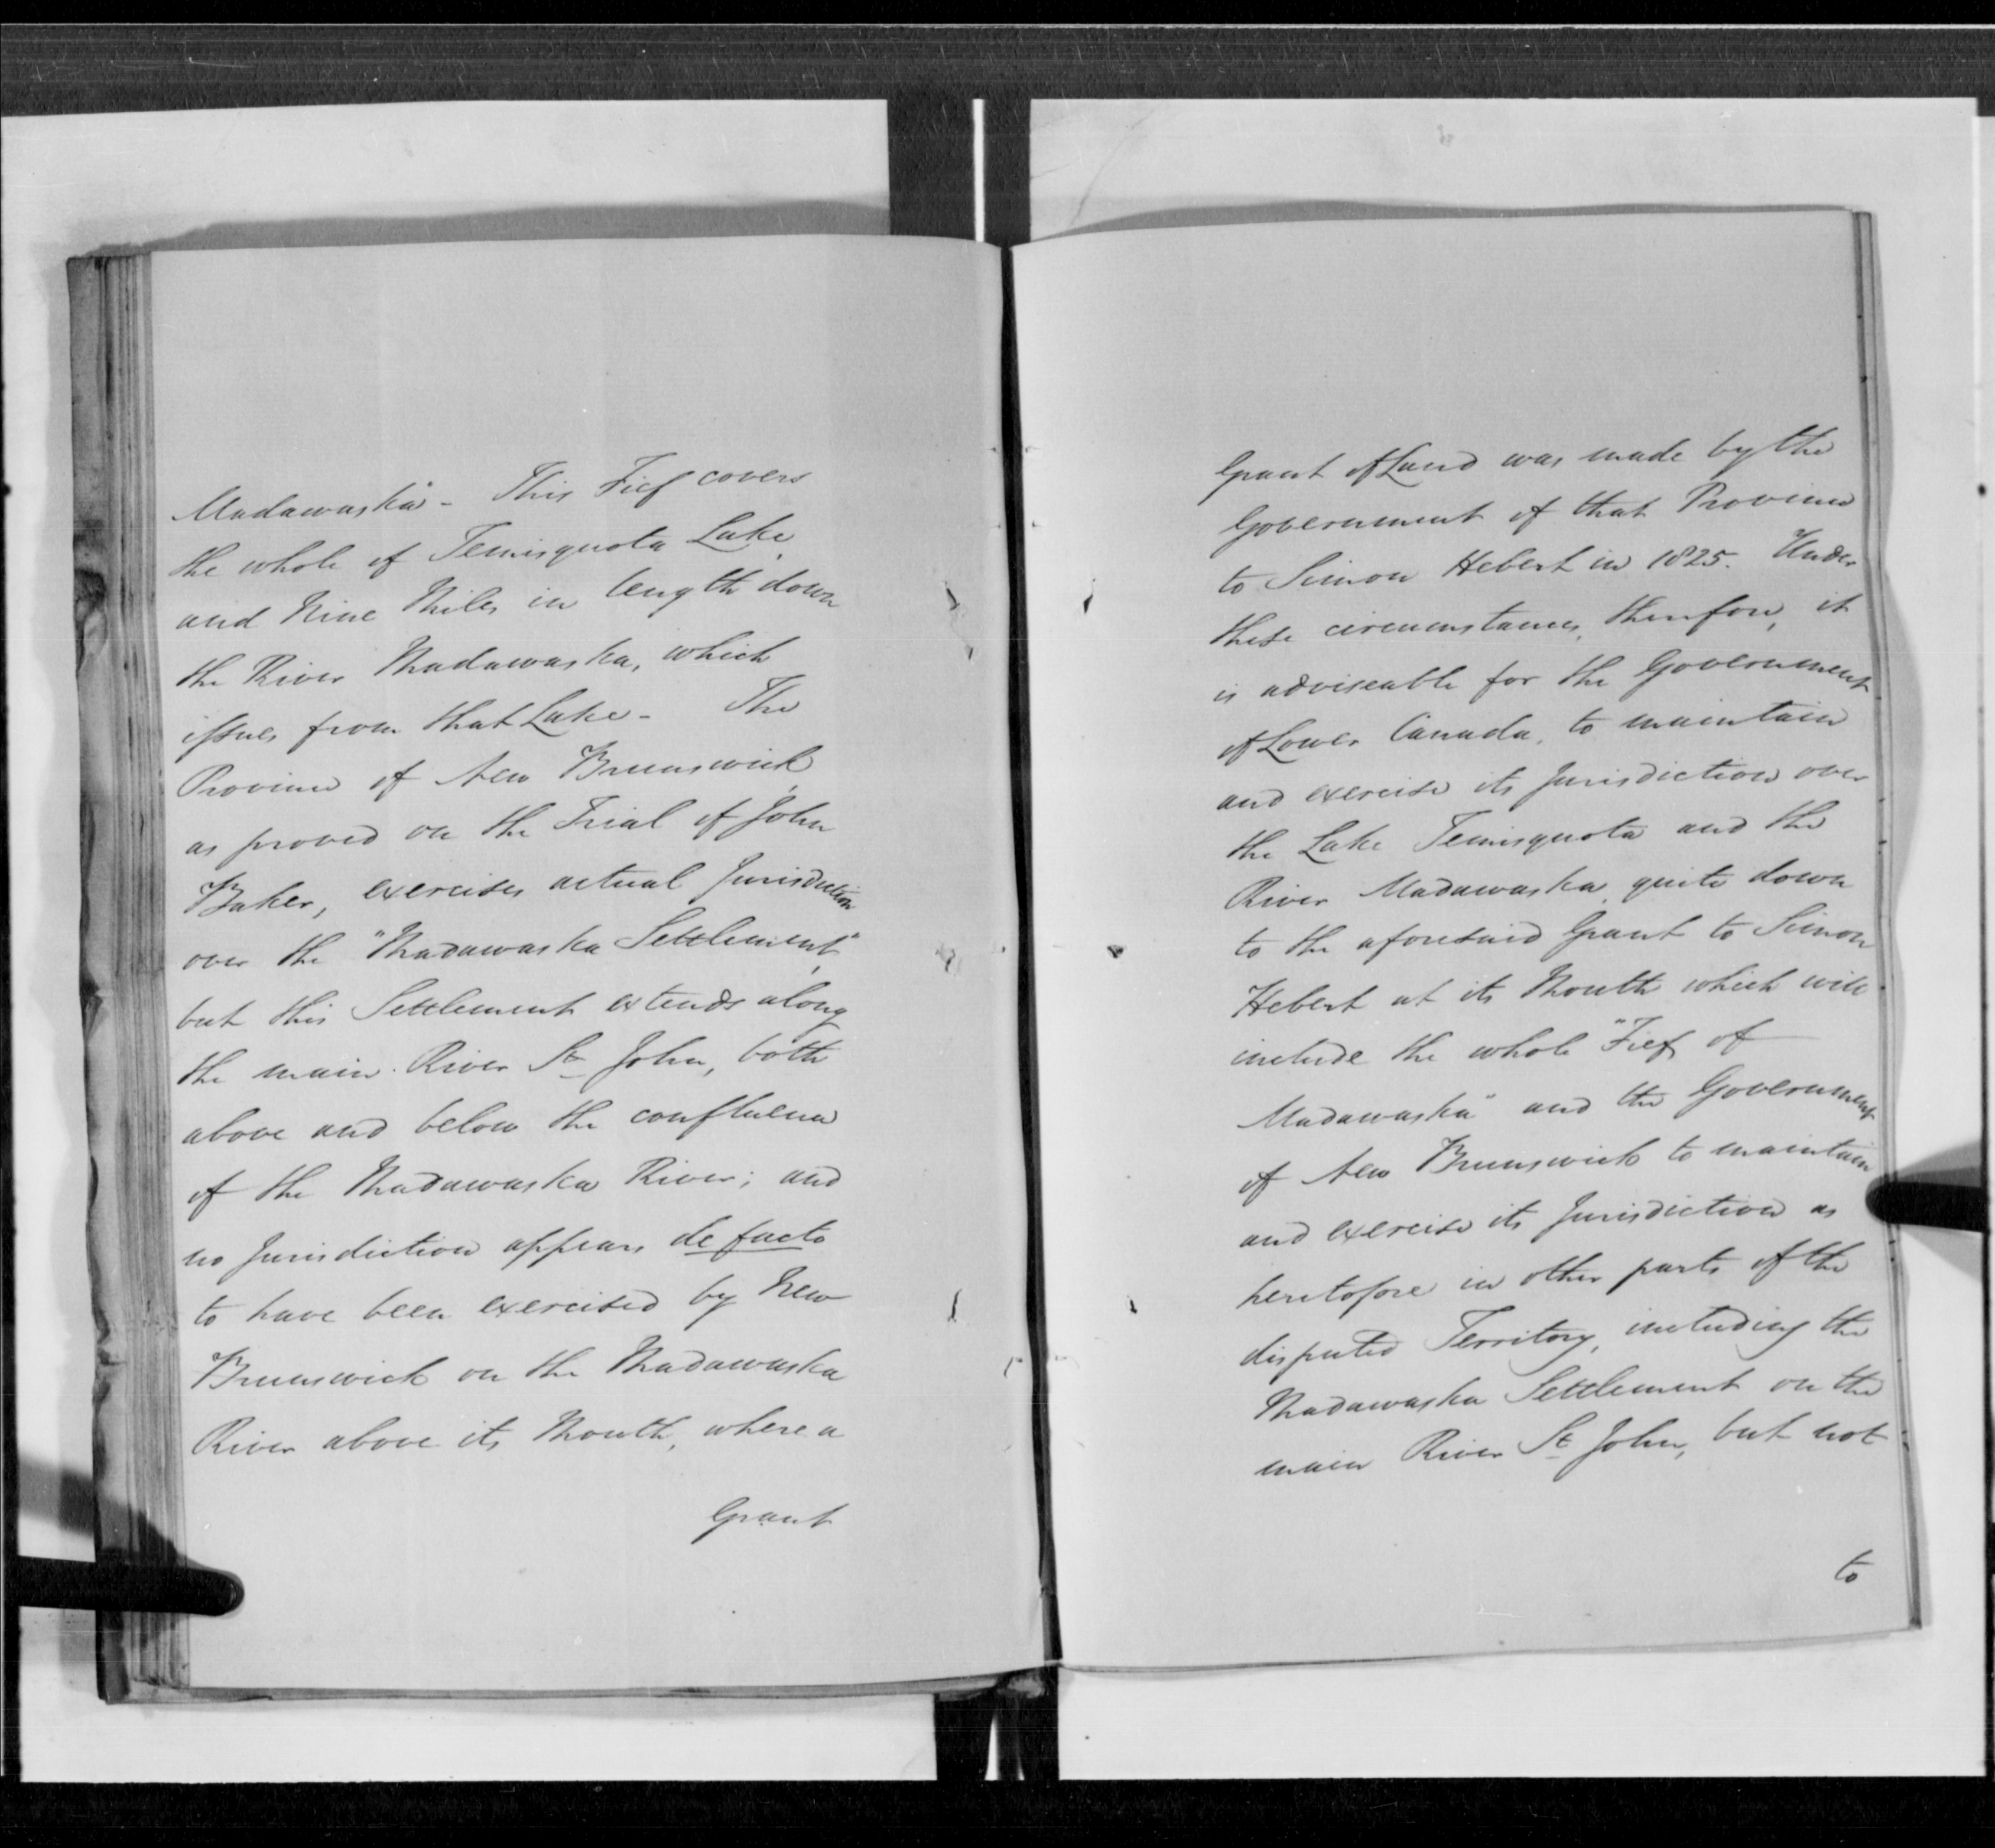 Madawaska" - This Fief covers
the whole of Temisquota Lake,
and Nine Miles in length down
the River Madawaska, which
issues from that Lake - The
Province of New Brunswick,
as proved on the Trial of John
Baker, exercises actual Jurisdiction
over the "Madawaska Settlement",
but this Settlement extends along
the main River St John, both
above and below the confluence
of the Madawaska River; and
no Jurisdiction appears de facto
to have been exercised by New
Brunswick on the Madawaska
River above its Mouth, where a
Grant
Grant of Land was made by the
Government of that Province
to Simon Hebert in 1825. Under
these circumstances, therefore, it
is adviseable for the Government
of Lower Canada, to maintain
and exercise its Jurisdiction over
the Lake Temisquota and the
River Madawaska, quite down
to the aforesaid Grant to Simon
Hebert at its Mouth which will
include the whole "Fief of
Madawaska" and the Government
of New Brunswick to maintain
and exercise its Jurisdiction as
heretofore in other parts of the
disputed Territory, including the
Madawaska Settlement on the
main River St John, but not
to